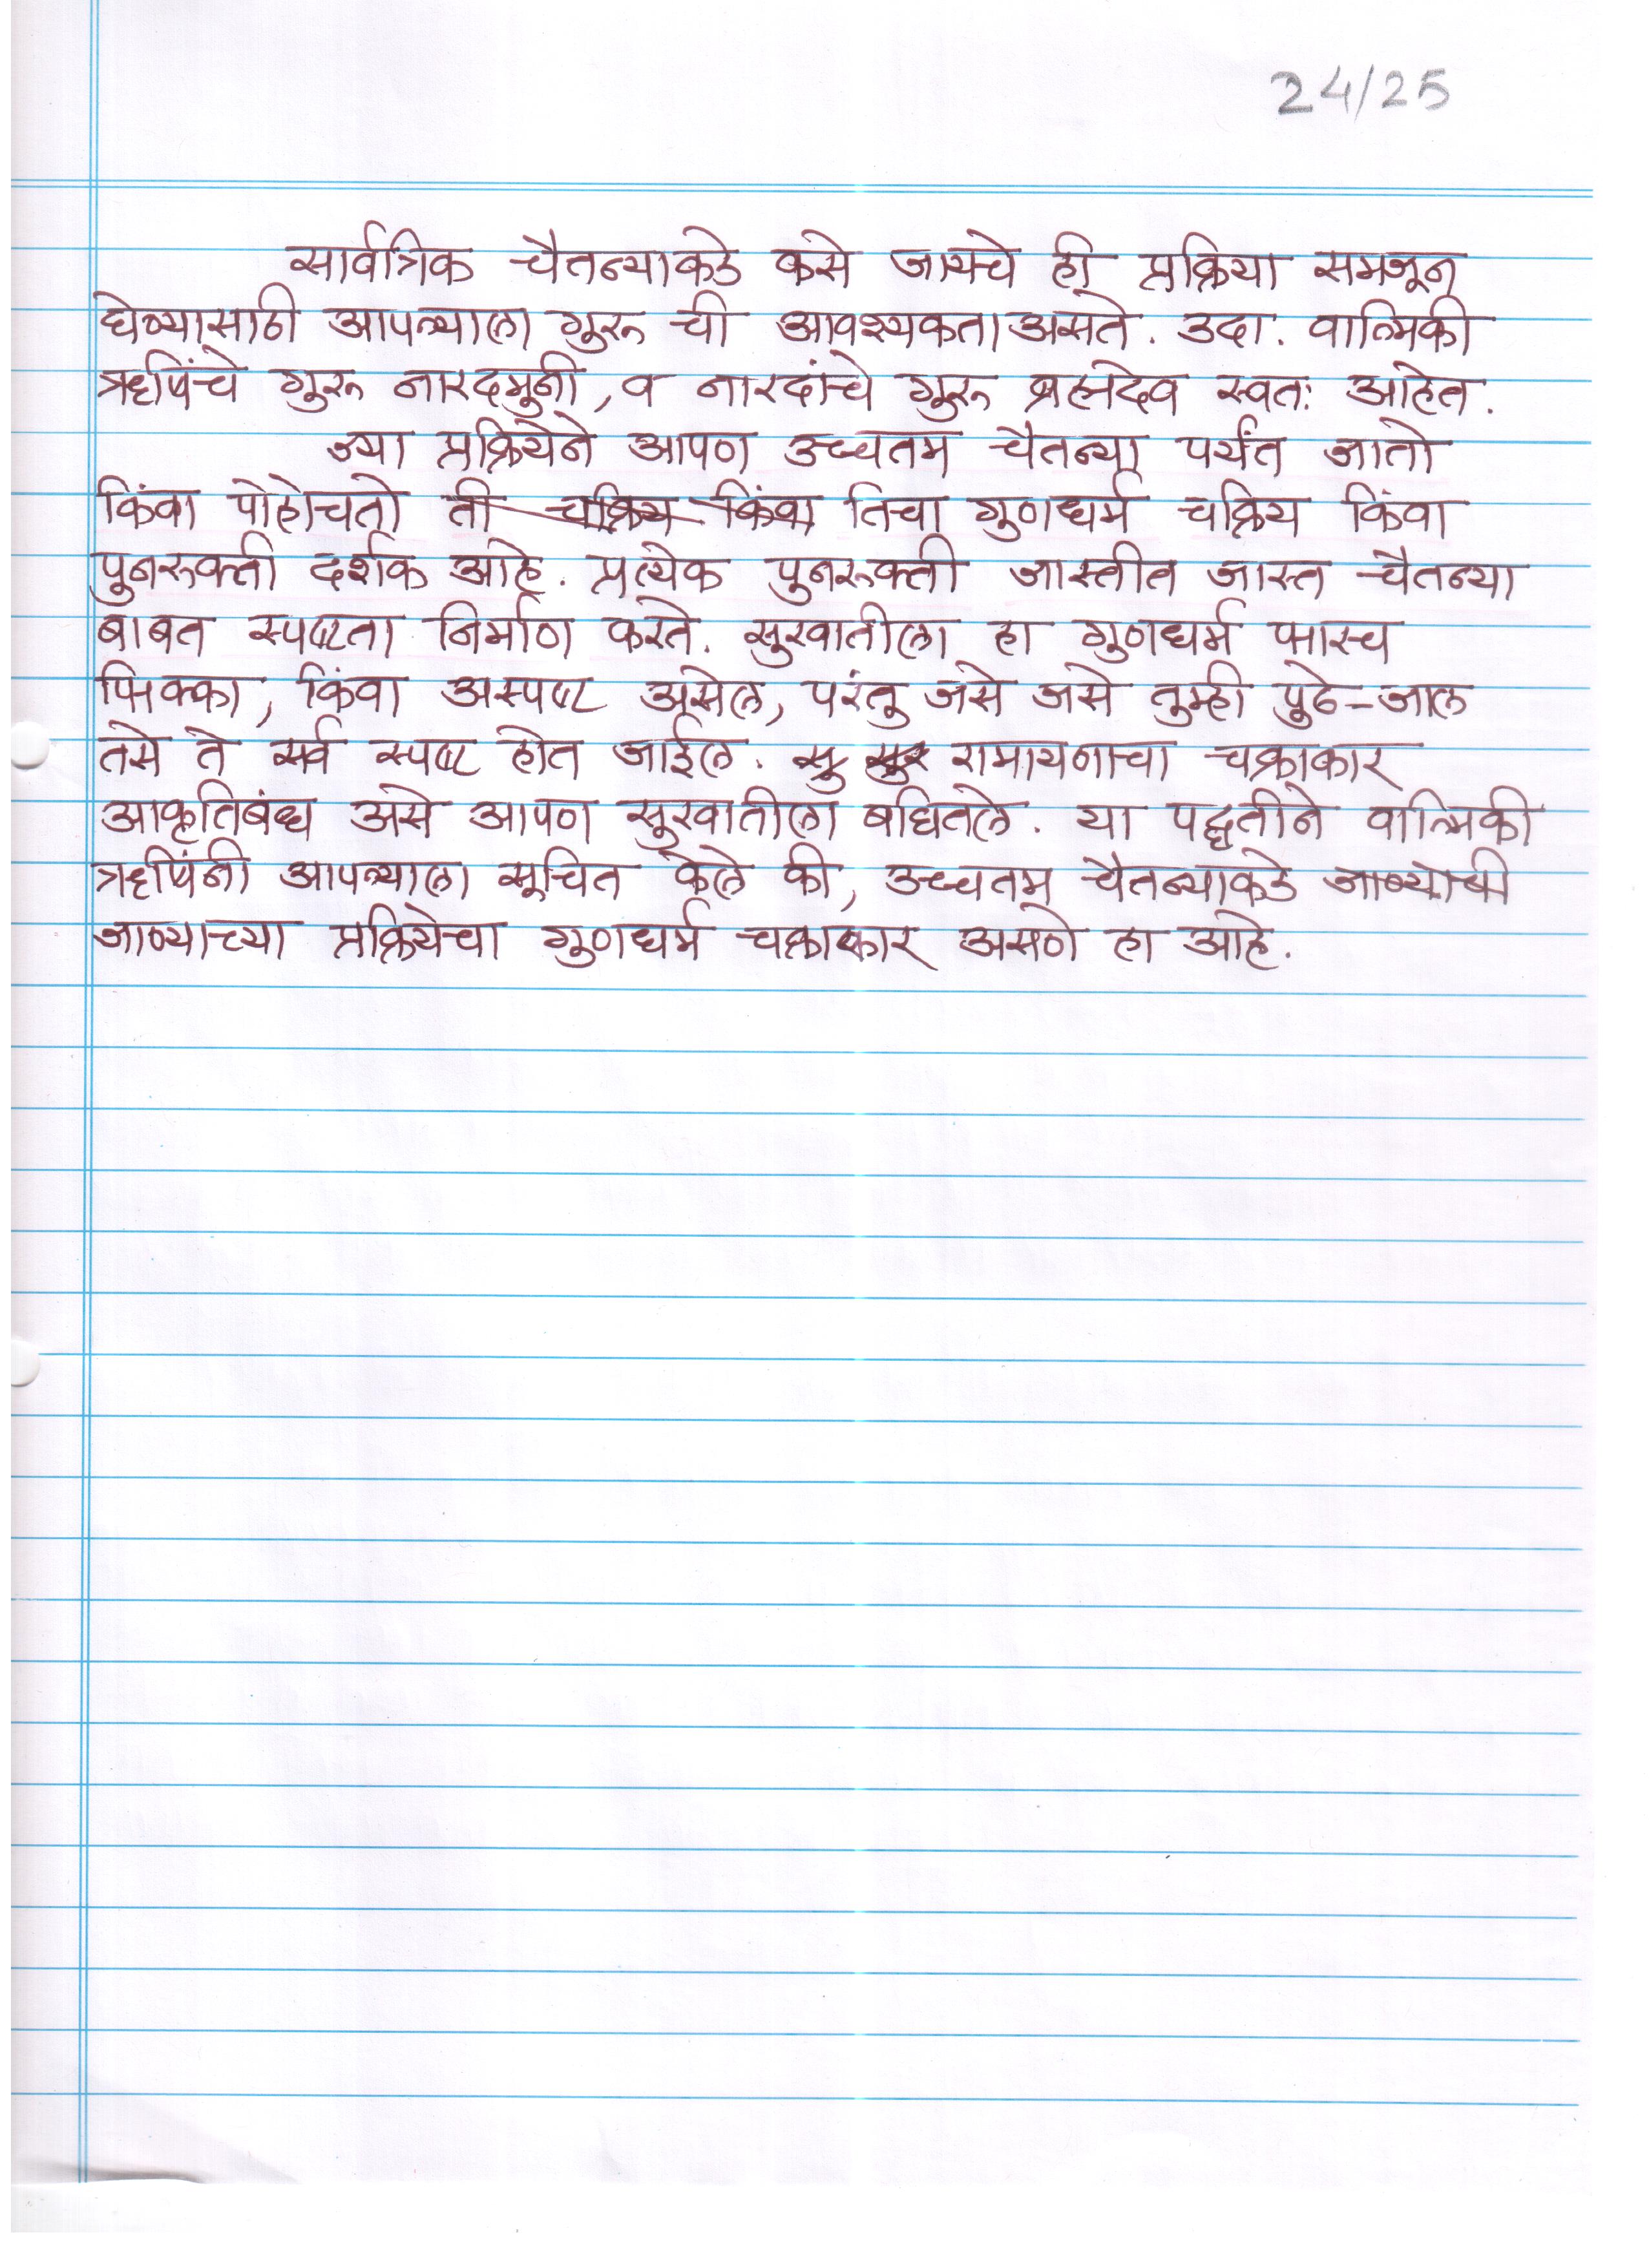 24/25
सार्वत्रिक चैतन्याकडे कसे जायचे ही प्रक्रिया समजून
घेण्यासाठी आपल्याला गुरू ची आवश्यकता असते. उदा. वाल्मिकी
ऋषिंचे गुरू नारदमुनी, व नारदांचे गुरू ब्रह्मदेव स्वतः आहेत.
ज्या प्रक्रियेने आपण उच्चतम चैतन्या पर्यंत जातो
किंवा पोहोचतो ती चक्रिय किंवा तिचा गुणधर्म चक्रिय किंवा
पुनरूक्ती दर्शक आहे. प्रत्येक पुनरूक्ती जास्तीत जास्त चैतन्या
बाबत स्पष्टता निर्माण करते. सुरवातीला हा गुणधर्म फारच
फिक्का, किंवा अस्पष्ट असेल, परंतु जसे जसे तुम्ही पुढे-जाल
तसे ते सर्व स्पष्ट होत जाईल. सु सुर रामायणाचा चक्राकार
आकृतिबंध असे आपण सुरवातीला बघितले. या पद्धतीने वाल्मिकी
ऋषिंनी आपल्याला सूचित केले की, उच्चतम चैतन्याकडे जाण्याची
जाण्याच्या प्रक्रियेचा गुणधर्म चक्राकार असणे हा आहे.